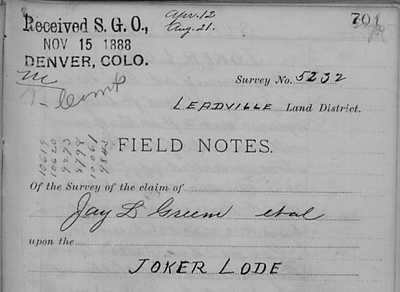 Received S. G. O.,
Apr. 12
Aug. 21.
701
NOV 15 1888
DENVER, COLO.
Survey No. 5232
LEADVILLE Land District.
FIELD NOTES.
Of the Survey of the claim of
Jay D Green et al
upon the
JOKER LODE